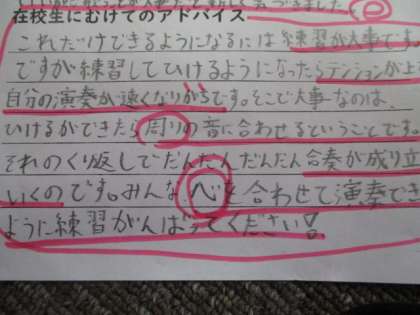 気づきました
在校生にむけてのアドバイス
これだけできるようになるには練習が大事です
ですが練習してひけるようになったらテンションが上
自分の演奏が速くなりがちです。そこで大事なのは、
ひけるができたら周りの音に合わせるということです
それのくり返しでだんだんだんだん合奏が成り立
いくのです。みんな心を合わせて演奏でき
ように練習がんばってください!